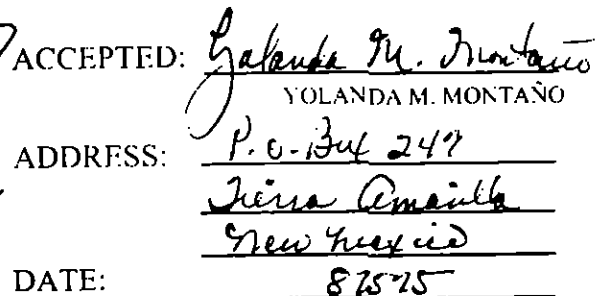 ACCEPTED: Yolanda M. Montaño
YOLANDA M. MONTAÑO
ADDRESS: P.O. Box 247
Tierra Amarilla
New Mexico
DATE: 87575